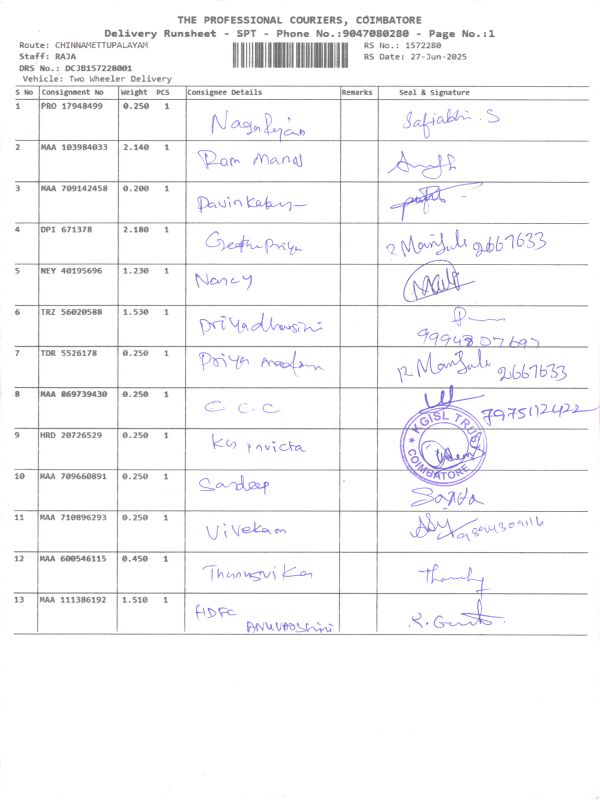 THE PROFESSIONAL COURIERS, COIMBATORE
Delivery Runsheet - SPT - Phone No.:9047080280 - Page No.:1
Route: CHINNAMETTUPALAYAM RS No.: 1572280
Staff: RAJA RS Date: 27-Jun-2025
DRS No.: DCJB157228001
Vehicle: Two Wheeler Delivery
S No Consignment No Weight PCS Consignee Details Remarks Seal & Signature
1 PRO 17948499 0.250 1 Nagarajan S
2 MAA 103984033 2.140 1 Ram
3 MAA 709142458 0.200 1
4 DPI 671378 2.180 1 Geetha Priya 2667633
5 NEY 40195696 1.230 1 Nancy
6 TRZ 56020588 1.530 1 Priyadharsini
7 TDR 5526178 0.250 1 Priya 2667633
8 MAA 869739430 0.250 1 C C C 7975112422
9 HRD 20726529 0.250 1 KGISL TRUST COIMBATORE
10 MAA 709660891 0.250 1 Sandeep
11 MAA 710896293 0.250 1 Vivekam
12 MAA 600546115 0.450 1
13 MAA 111386192 1.510 1 HDFC